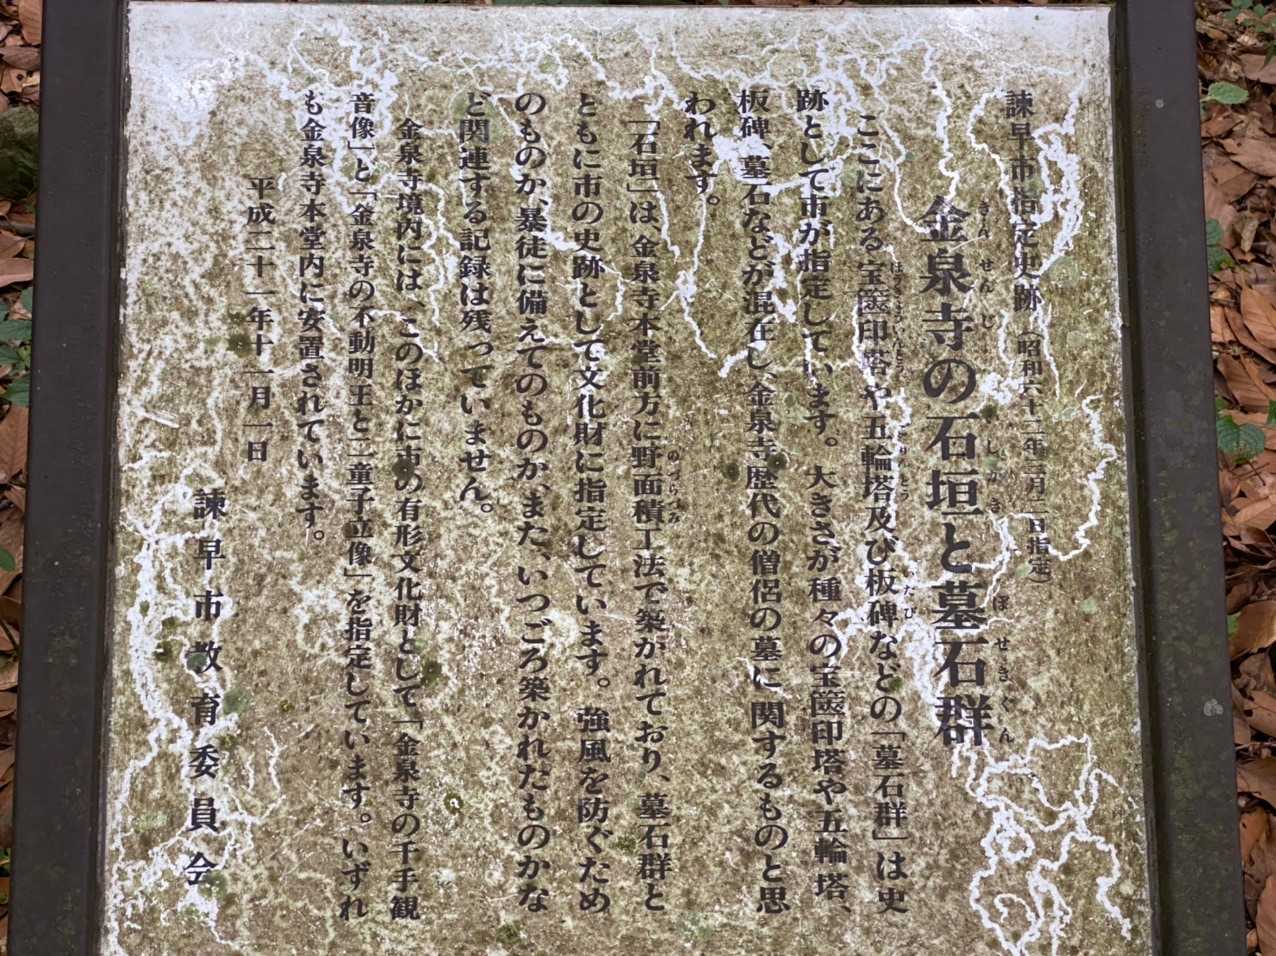 諫早市指定史跡（昭和六十二年三月二日指定）
金泉寺の石垣と墓石群
ここにある宝篋印塔や五輪塔及び板碑などの「墓石群」は史
跡として市が指定しています。大きさが種々の宝篋印塔や五輪塔、
板碑、墓石などが混在し、金泉寺歴代の僧侶の墓に関するものと思
われます。
「石垣」は、金泉寺本堂前方に野面積工法で築かれており、墓石群と
ともに市の史跡として文化財に指定しています。強風を防ぐため
のものか、暴徒に備えてのものか、また、いつごろ築かれたものかな
ど関連する記録は残っていません。
金泉寺境内には、このほかに市の有形文化財として「金泉寺の千手観
音像」と「金泉寺の不動明王と二童子立像」を指定しています。いずれ
も金泉寺本堂内に安置されています。
平成二十一年十一月一日
諫早市教育委員会